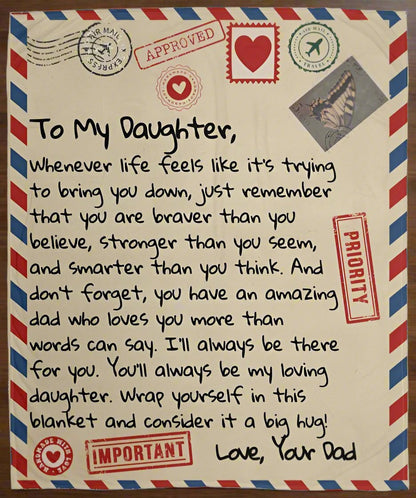 AIR MAIL
EXPRESS
APPROVED
AIR MAIL
TRAVEL
To My Daughter,
Whenever life feels like it's trying
to bring you down, just remember
that you are braver than you
believe, stronger than you seem,
and smarter than you think. And
don't forget, you have an amazing
dad who loves you more than
words can say. I'll always be there
for you. You'll always be my loving
daughter. Wrap yourself in this
blanket and consider it a big hug!
Love, Your Dad
PRIORITY
HANDMADE WITH LOVE
IMPORTANT